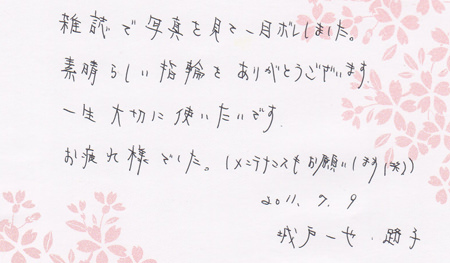 雑誌で写真を見て一目ボレしました。
素晴らしい指輪をありがとうございます.
一生大切に使いたいです.
お疲れ様でした。(メンテナンスもお願いします(笑))
2011. 7. 9
城戸一也・路子